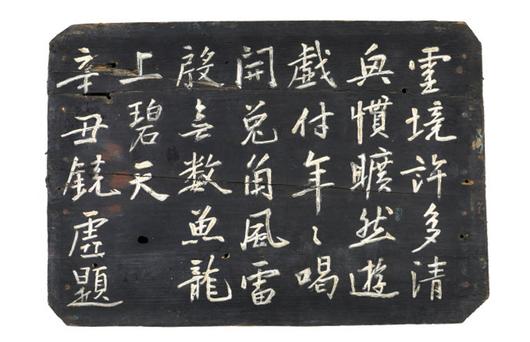 靈境許多清
興慣曠然遊
戲付年〻喝
開兎角風雷
殷無數魚龍
上碧天
辛丑鏡虛題